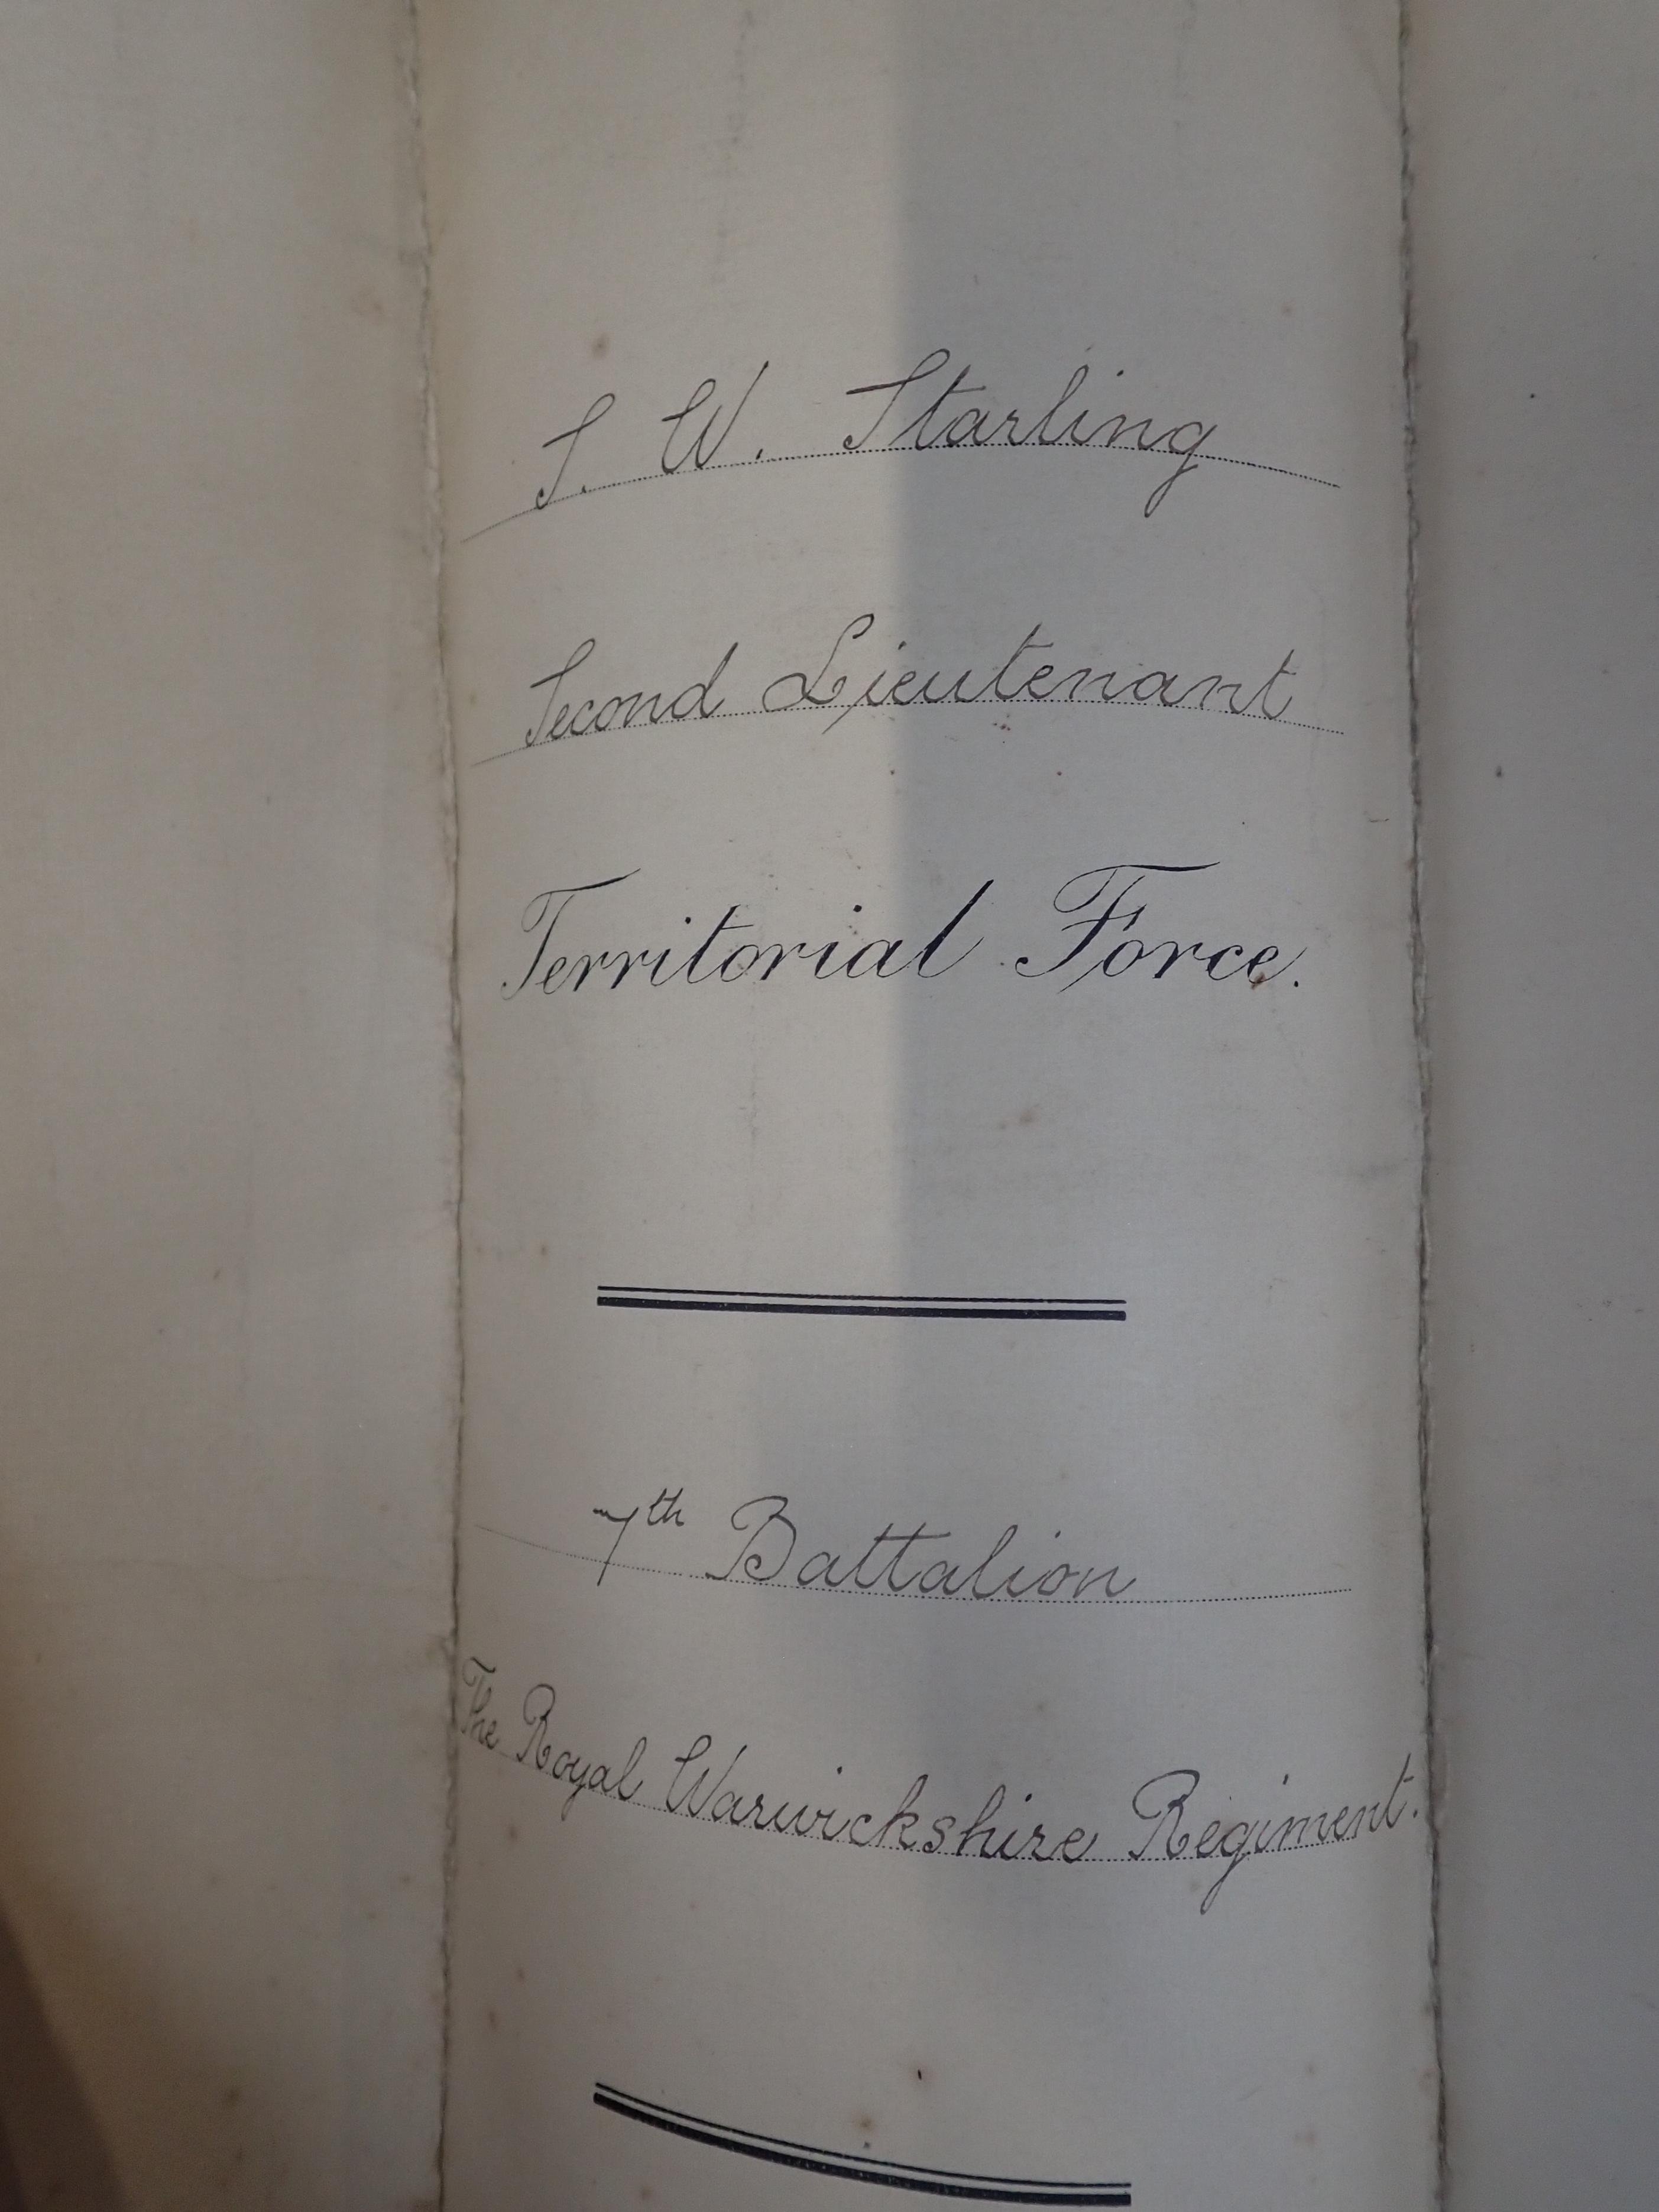 S. W. Starling
Second Lieutenant
Territorial Force.
7th Battalion
The Royal Warwickshire Regiment.